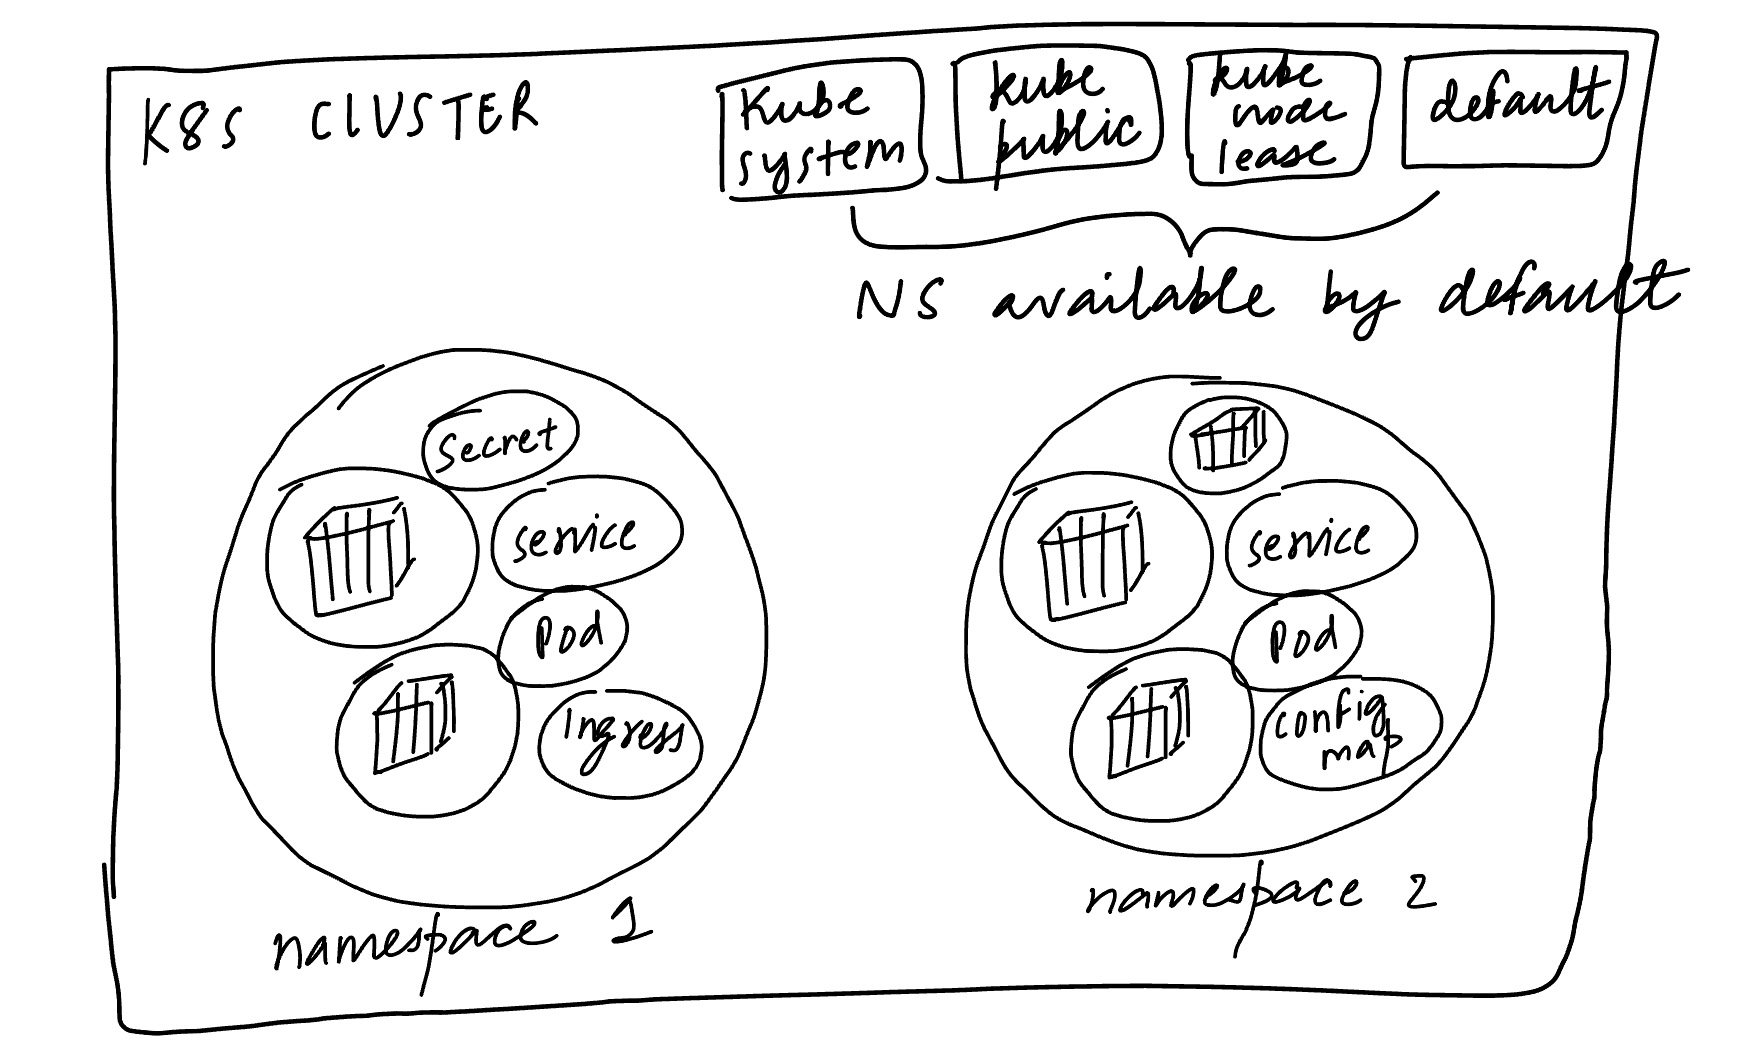 K8S CLUSTER
Kube
system
kube
public
kube
node
lease
default
NS available by default
Secret
service
Pod
Ingress
namespace 1
service
Pod
config
map
namespace 2